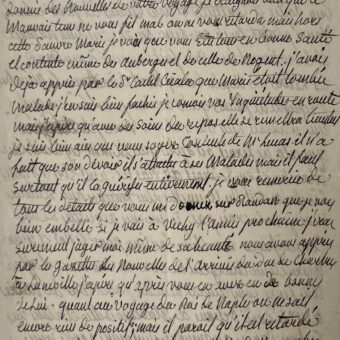 donne des Nouvelles de votre voyage je craignois que le
Mauvais tems ne vous fit mal ou ne vous retarda mais hors
cette pauvre Marie je vois que vous etes tous en bonne santé
et contente même des auberges et de celle de Nogent. j'avois
deja appris par le Sr que Marie étoit tombée
Malade j'en suis bien fachée je connois vos inquietudes en route
mais j'espere qu'avec des soins du repos elle se remettra
je suis bien aise que vous soyez contente de Mr Lucas il n'a
fait que son devoir il s'attache à ses Malades mais il faut
surtout qu'il la guerisse entierement je vous remercie de
tous les détails que vous me donnez sur que je vois
bien embelli si je vais à Vichy l'année prochaine j'irai
surement juger moi même de sa beauté nous avons appris
par la gazette des Nouvelles de l'arrivée de de
à Lunéville j'espere qu'après vous en aurez de bonnes
de lui. quant au voyage du Roi de Naples on ne sait
encore rien de positif; mais il paroit qu'il est retardé